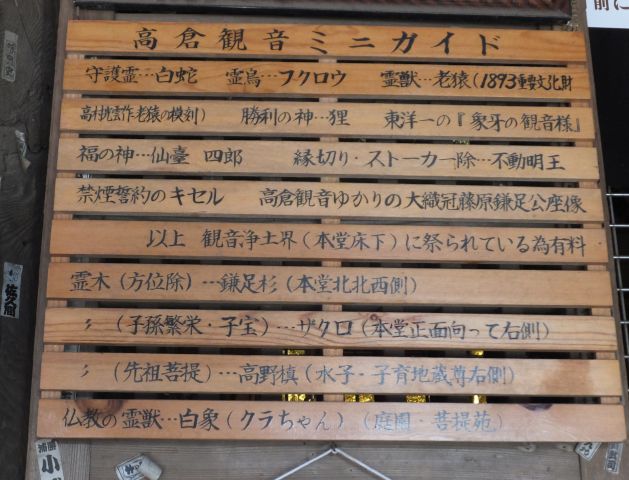 高倉観音ミニガイド
守護霊…白蛇　霊鳥…フクロウ　霊獣…老猿(1893重要文化財
高村光雲作老猿の模刻)　勝利の神…狸　東洋一の『象牙の観音様』
福の神…仙臺 四郎　縁切り・ストーカー除…不動明王
禁煙誓約のキセル　高倉観音ゆかりの大織冠藤原鎌足公座像
以上 観音浄土界(本堂床下)に祭られている為有料
霊木(方位除)…鎌足杉(本堂北北西側)
〃(子孫繁栄・子宝)…ザクロ(本堂正面向って右側)
〃(先祖菩提)…高野槙(水子・子育地蔵尊右側)
仏教の霊獣…白象(クラちゃん)(庭園・菩提苑)
前に
佐久間
小